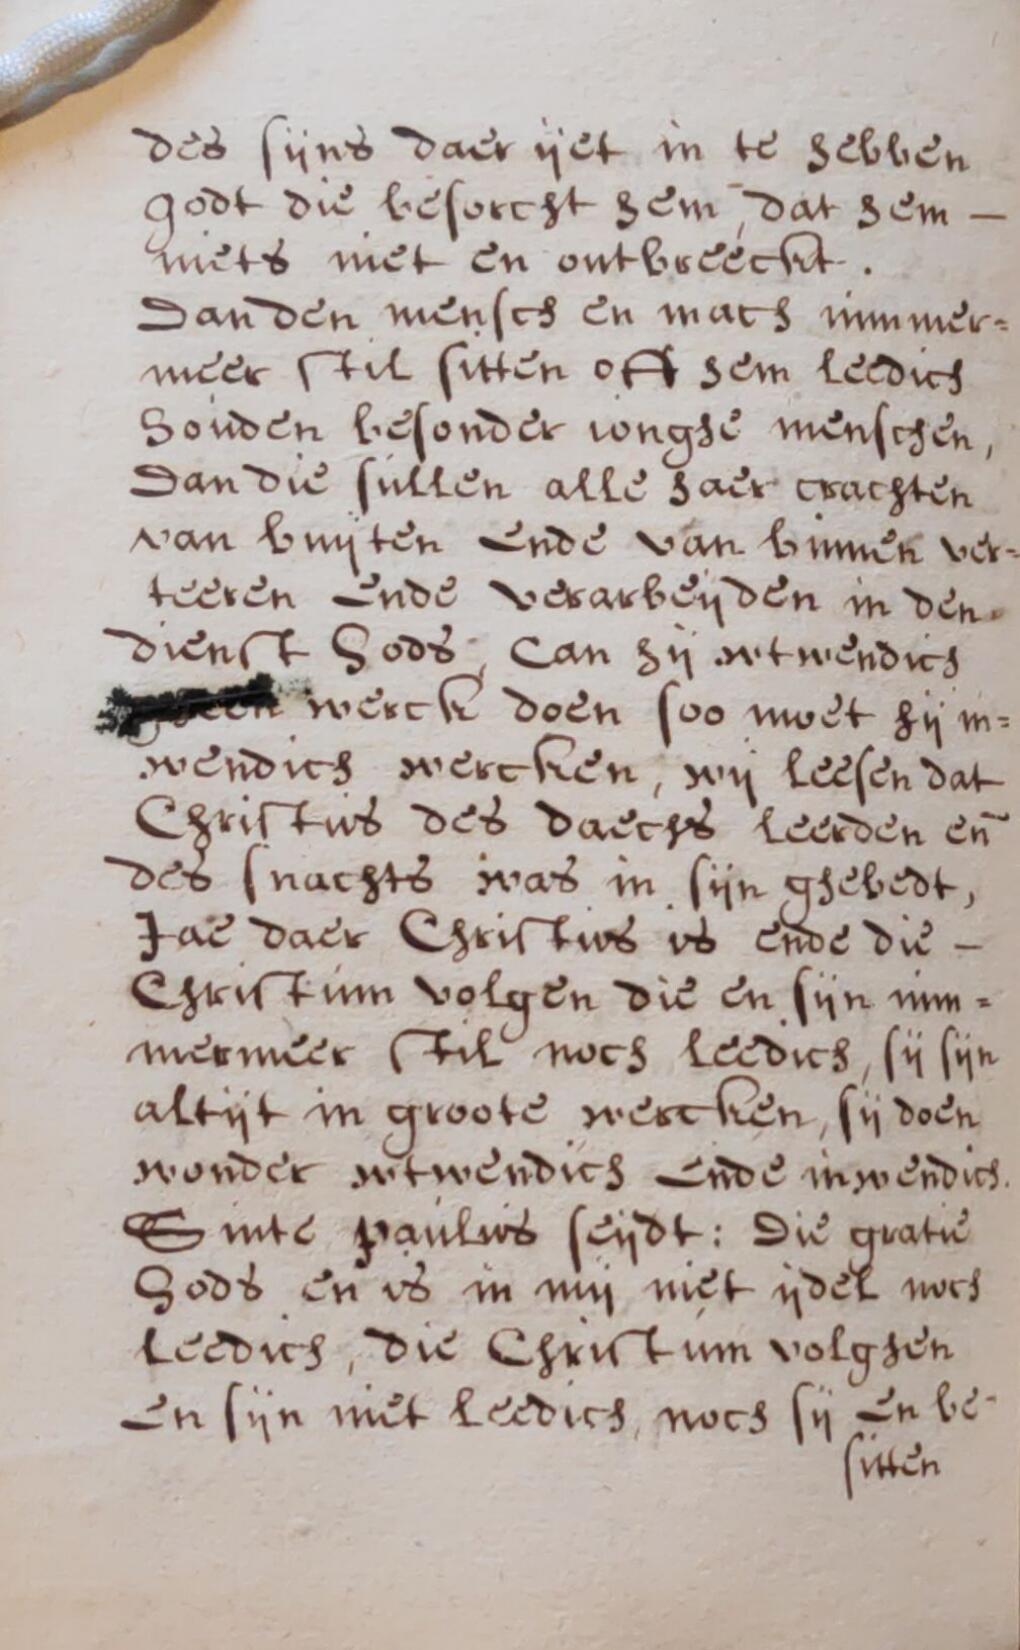 des sijns daer ijet in te hebben
godt die besorcht hem, dat hem –
niets niet en ontbreeckt.
Dan den mensch en mach nimmer=
meer stil sitten off hem leedich
houden besonder ionghe menschen,
Dan die sullen alle haer crachten
van buijten Ende van binnen ver=
teeren Ende verarbeijden in den
dienst Gods, Can hij wtwendich
geen werck doen soo moet hij in=
wendich wercken, wij leesen dat
Christus des daechs leerden en̄
des snachts was in sijn ghebedt,
Jae daer Christus is ende die –
Christum volgen die en sijn nim=
mermeer stil noch leedich, sij sijn
altijt in groote wercken, sij doen
wonder wtwendich Ende inwendich.
Sinte paulus seijdt: Die gratie
Gods en is in mij niet ijdel noch
leedich, die Christum volghen
En sijn niet leedich, noch sij En be-
sitten